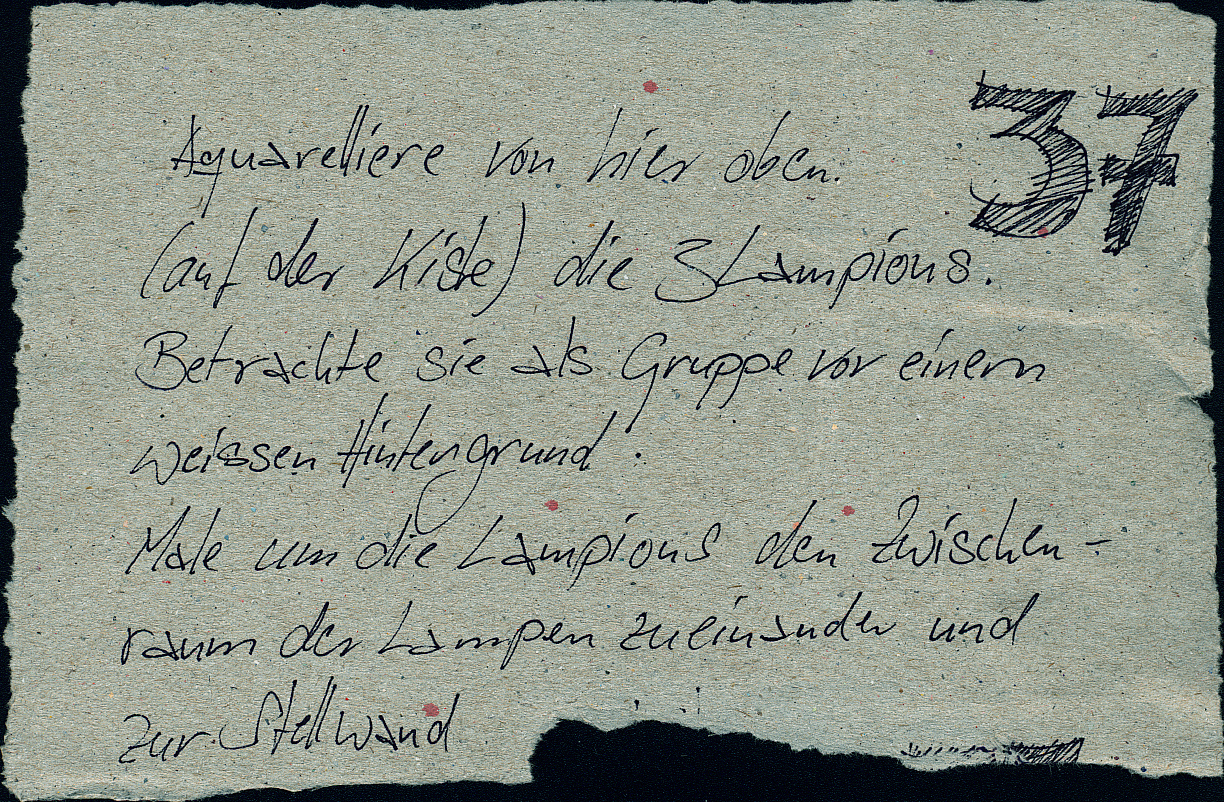 37
Aquarelliere von hier oben.
(auf der Kiste) die 3 Lampions.
Betrachte sie als Gruppe vor einem
weissen Hintergrund.
Male um die Lampions den Zwischen-
raum der Lampen zueinander und
zur Stellwand